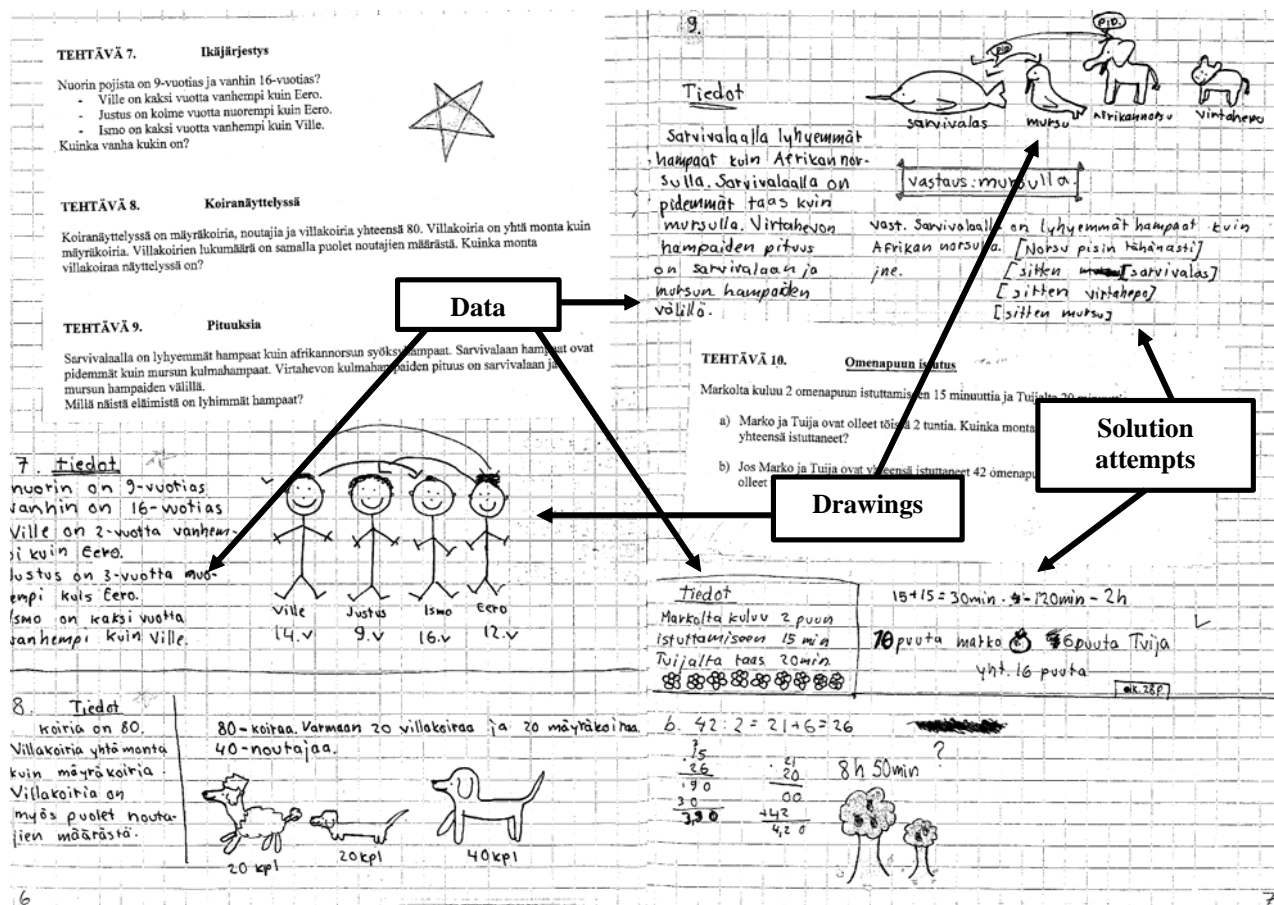 TEHTÄVÄ 7. Ikäjärjestys
Nuorin pojista on 9-vuotias ja vanhin 16-vuotias?
- Ville on kaksi vuotta vanhempi kuin Eero.
- Justus on kolme vuotta nuorempi kuin Eero.
- Ismo on kaksi vuotta vanhempi kuin Ville.
Kuinka vanha kukin on?
TEHTÄVÄ 8. Koiranäyttelyssä
Koiranäyttelyssä on mäyräkoiria, noutajia ja villakoiria yhteensä 80. Villakoiria on yhtä monta kuin
mäyräkoiria. Villakoirien lukumäärä on samalla puolet noutajien määrästä. Kuinka monta
villakoiraa näyttelyssä on?
Data
TEHTÄVÄ 9. Pituuksia
Sarvivalaalla on lyhyemmät hampaat kuin afrikannorsun syöksyhampaat. Sarvivalaan hampaat ovat
pidemmät kuin mursun kulmahampaat. Virtahevon kulmahampaiden pituus on sarvivalaan ja
mursun hampaiden välillä.
Millä näistä eläimistä on lyhimmät hampaat?
7. tiedot
nuorin on 9-vuotias
vanhin on 16-vuotias
Ville on 2-vuotta vanhem-
pi kuin Eero.
Justus on 3-vuotta nuo-
empi kuis Eero.
Ismo on kaksi vuotta
vanhempi kuin Ville.
Ville Justus Ismo Eero
14.v 9.v 16.v 12.v
8. Tiedot
koiria on 80.
Villakoiria yhtä monta
kuin mäyräkoiria.
Villakoiria on
myös puolet nouta-
jien määrästä.
80-koiraa. Varmaan 20 villakoiraa ja 20 mäyräkoiraa.
40-noutajaa.
20 kpl 20kpl 40kpl
6
9.
PID.
PID
sarvivalas mursu Afrikannorsu virtahepo
Tiedot
Sarvivalaalla lyhyemmät
hampaat kuin Afrikan nor-
sulla. Sarvivalaalla on
pidemmät taas kuin
mursulla. Virtahevon
hampaiden pituus
on sarvivalaan ja
mursun hampaiden
välillä.
vastaus: mursulla.
vast. Sarvivalaalla on lyhyemmät hampaat kuin
Afrikan norsulla. [Norsu pisin tähänasti]
jne. [sitten [sarvivalas]
[sitten virtahepo]
[sitten mursu]
TEHTÄVÄ 10. Omenapuun istutus
Markolta kuluu 2 omenapuun istuttamiseen 15 minuuttia ja Tuijalta 20 minuuttia
a) Marko ja Tuija ovat olleet töissä 2 tuntia. Kuinka monta
yhteensä istuttaneet?
b) Jos Marko ja Tuija ovat yhteensä istuttaneet 42 omenapu
olleet
Solution
attempts
Drawings
tiedot
Markolta kuluu 2 puun
istuttamiseen 15 min
Tuijalta taas 20min.
15+15=30min . - 120min - 2h
10 puuta marko 6puuta Tuija
yht. 16 puuta
b. 42 : 2 = 21 + 6 = 26
?
8h 50min
15
26
190
30
3,90
21
20
00
+42
4,20
7